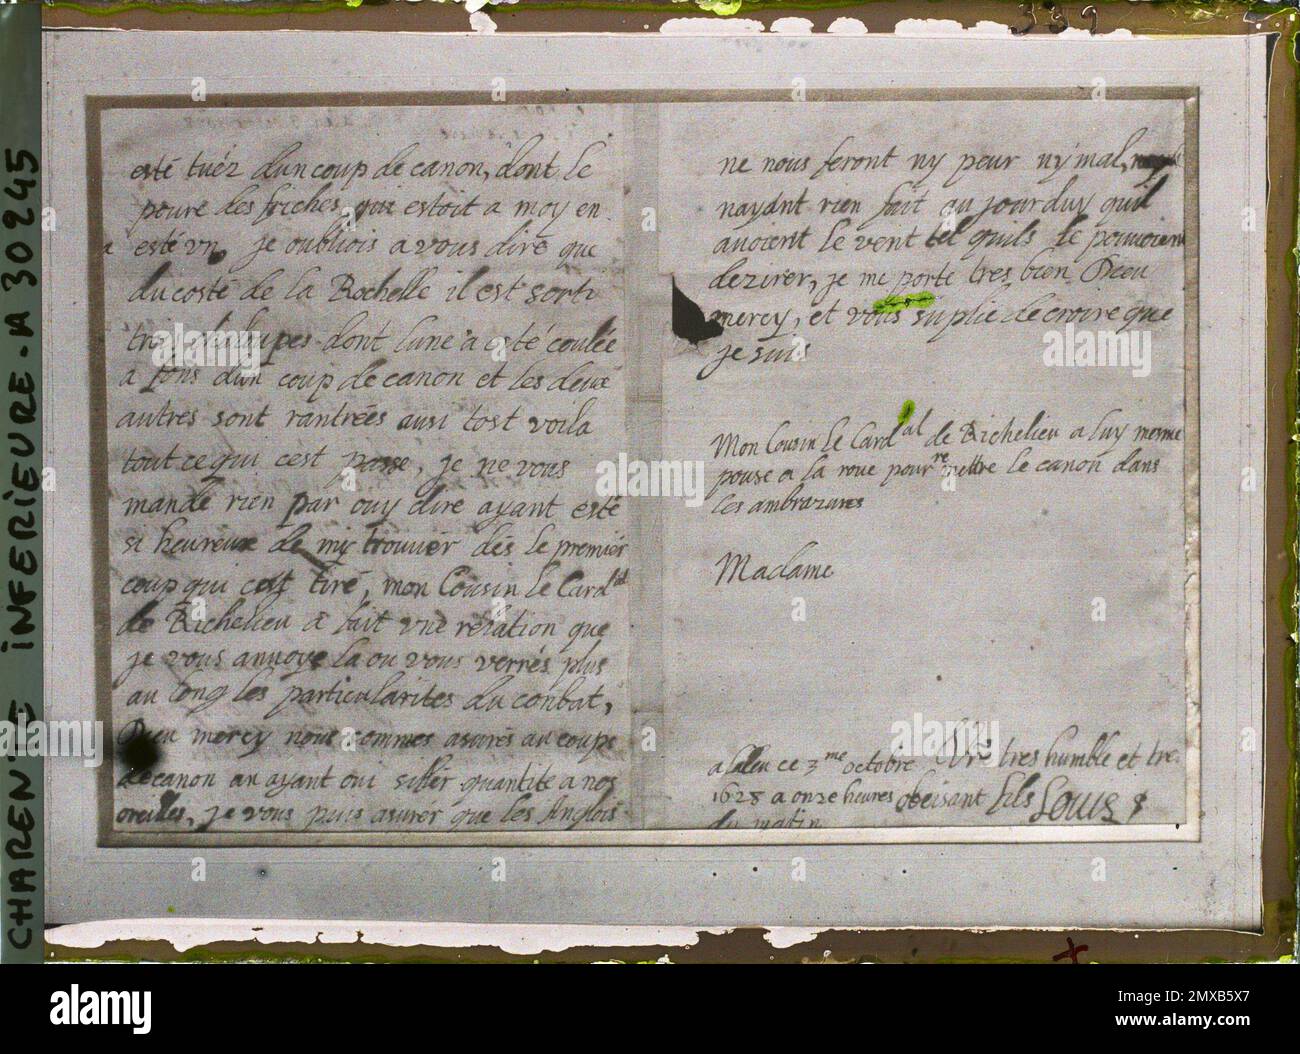 339
CHARENTE INFERIEURE. A 30245
esté tuéz dun coup de canon, dont le
poure des friches, qui estoit a moy en
a esté vn, je oubliois a vous dire que
du costé de la Rochelle il est sorti
trois chaloupes dont lune a esté coulée
a fons dun coup de canon et les deux
autres sont rantrées ausi tost voila
tout ce qui cest passe, je ne vous
mande rien par ouy dire ayant esté
si heureux de my trouuer dés le premier
coup qui cest tiré, mon Cousin le Card^al
de Richelieu a fait vne relation que
je vous annoye la ou vous verrés plus
au long les particularites du conbat,
Dieu mercy nous sommes asurés au coups
de canon an ayant oui sifler quantite a nos
oreilles, je vous puis asurér que les Anglois
ne nous feront ny peur ny mal,
nayant rien fait au jourduy quil
auoient le vent tel quils le pouuoient
dezirer, je me porte tres bien Dieu
mercy, et vous suplie de croire que
je suis
Mon Cousin le Card^al de Richelieu a luy mesme
pousé a la roue pour remettre le canon dans
les ambrazures
Madame
Vre tres humble et tre
obeisant fils Louis
a ce 3^me octobre
1628 a onze heures
du matin
alamy
Image ID: 2MXB5X7
www.alamy.com